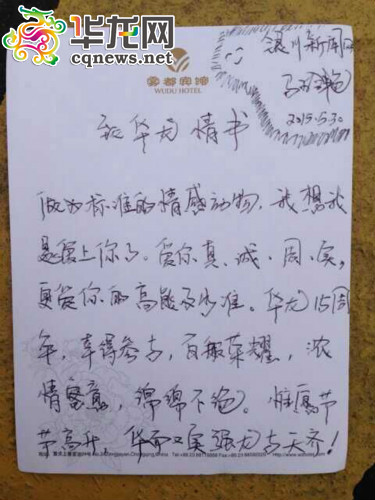 华龙网
cqnews.net
雾都宾馆
WUDU HOTEL
银川新闻网
2015.5.30
致华龙情书
做为标准的情感动物，我想我
是爱上你了。爱你真、诚、周、实，
更爱你的高能及水准。华龙15周
年，幸得参与，百般荣耀，浓
情蜜意，绵绵不绝。惟愿节
节高升，华而又实强龙与天齐！